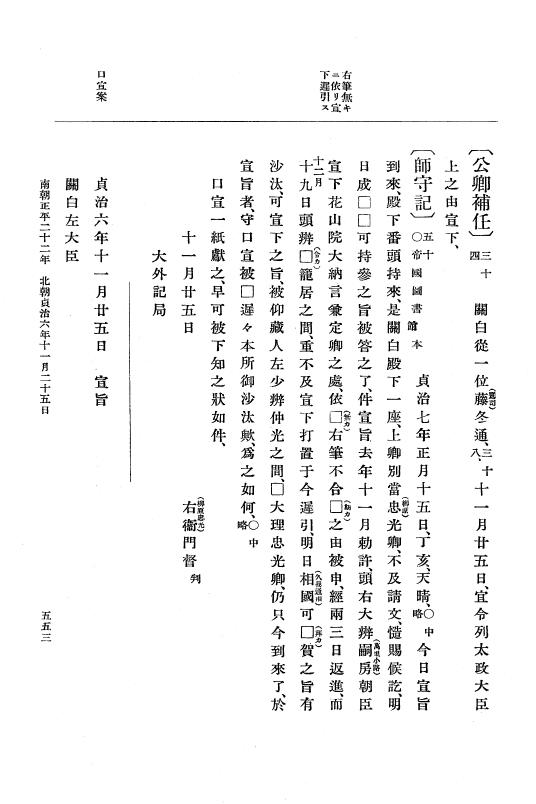 右筆無キ
ニ依リ宣
下遲引ス
口宣案
〔公卿補任〕三十四 關白從一位藤(鷹司)冬通、三十八、十一月廿五日、宜令列太政大臣
上之由宣下、
〔師守記〕五十 ○帝國圖書館本 貞治七年正月十五日、丁亥、天晴、○中略 今日宣旨
到來、殿下番頭持來、是關白殿下一座、上卿別當忠(柳原)光卿、不及請文、慥賜候訖、明
日成□□可持參之旨被答之了、件宣旨去年十一月勅許、頭右大辨嗣(萬里小路)房朝臣
宣下花山院大納言兼定卿之處、依□(無カ)右筆不合□(點カ)之由被申、經兩三日返進、而
十二月
十九日頭辨□(令カ)籠居之間、重不及宣下打置于今遲引、明日相(久我通相)國可□(拜カ)賀之旨有
沙汰、可宣下之旨、被仰藏人左少辨仲光之間、□大理忠光卿、仍只今到來了、於
宣旨者、守口宣被□遲々本所御沙汰歟、爲之如何、○中略
口宣一紙獻之、早可被下知之狀如件、
十一月廿五日 右(柳原忠光)衞門督 判
大外記局
貞治六年十一月廿五日 宣旨
關白左大臣
南朝正平二十二年 北朝貞治六年十一月二十五日
五五三